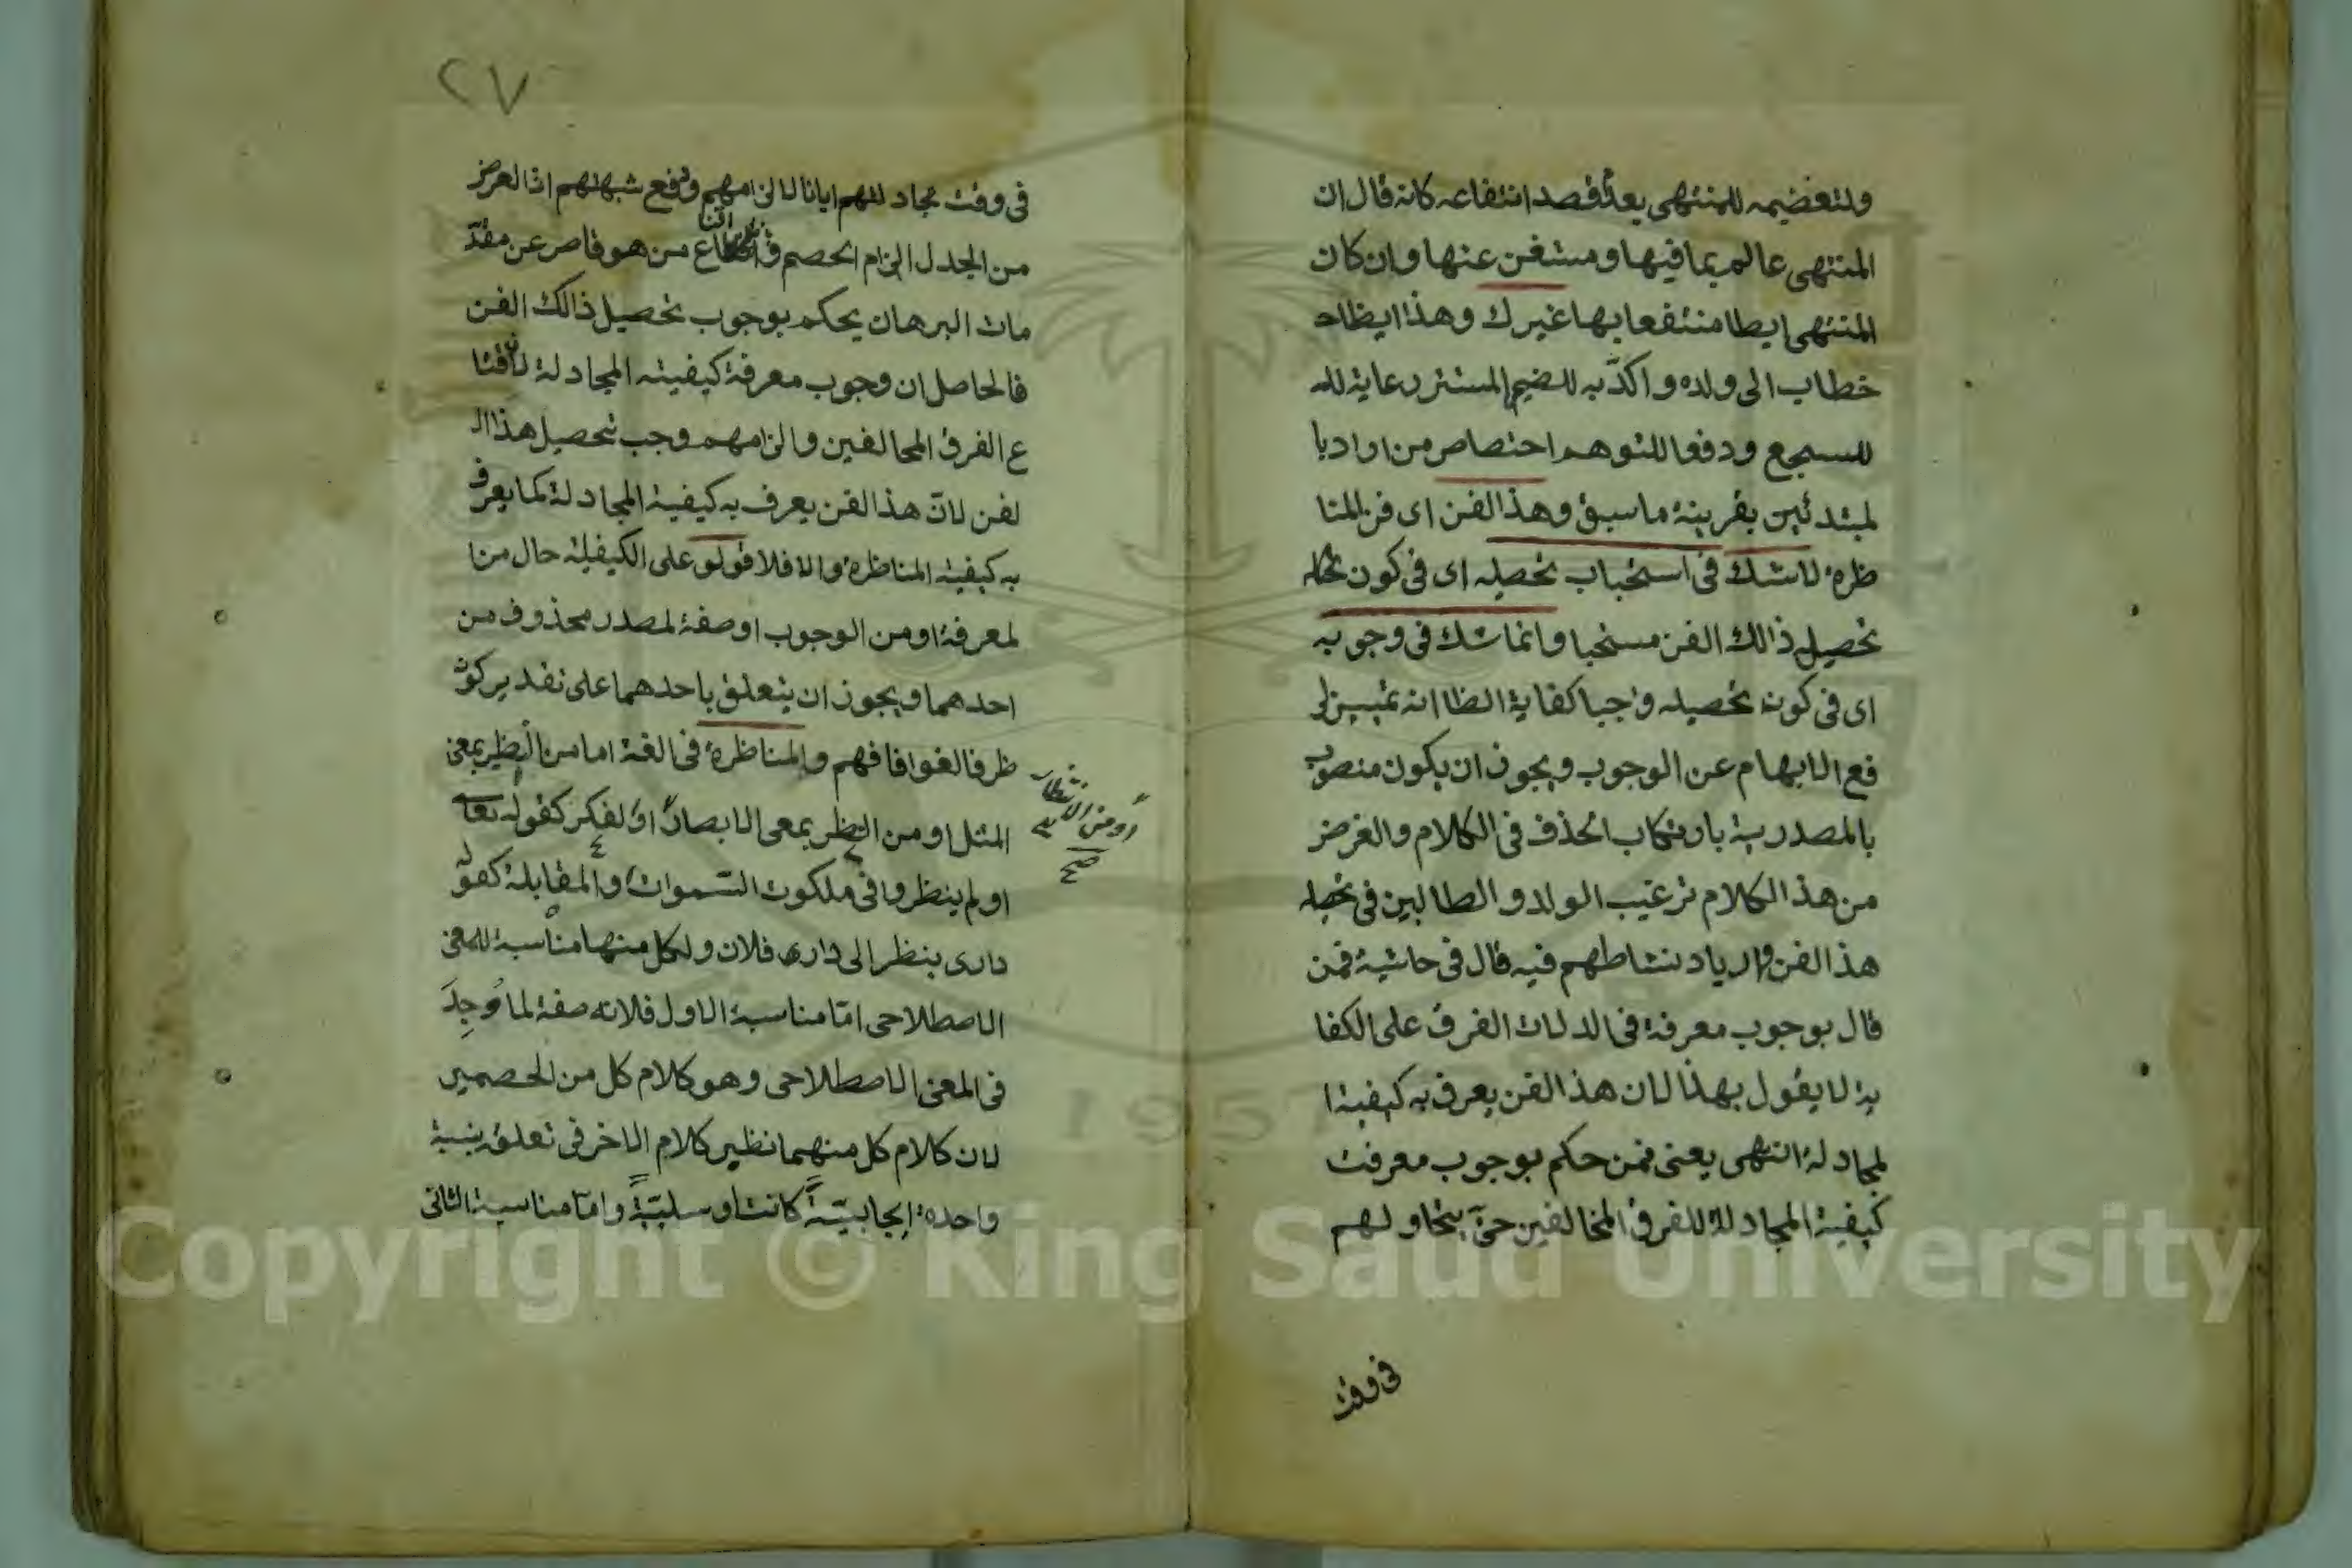 ولتعضيمه للمنتهى بعدّ قصد انتفاعه كانه قال ان
المنتهى عالم بما فيها ومستغن عنها وان كان
المنتهى ايطا منتفعا بها غيرك وهذا ايظا
خطاب الى ولده واكدّ به للضيم المستتر رعاية
للسجع ودفعا للتوهم احتصاص من اوادبا
لمبتدئين بقرينة ماسبق وهذا الفن اى فن المنا
ظرة لاشك فى استحباب تحصيله اى فى كون
تحصيل ذالك الفن مستحبا وانما شك فى وجوبه
اى فى كون تحصيله واجبا كفاية الظا انه تمييز لر
فع الابهام عن الوجوب ويجوز ان يكون منصوب
بالمصدرية بارتكاب الحذف فى الكلام والغرض
من هذ الكلام ترغيب الولد والطالبين فى
هذ الفن وازدياد نشاطهم فيه قال فى حاشية فمن
قال بوجوب معرفة فى الدلات الفرق على الكفا
ية لا يقول بهذا لان هذ الفن يعرف به كيفية ا
لمجادلة انتهى يعنى فمن حكم بوجوب معرفت
كيفية المجادلة للفرق المخالفين حتى يتخاولهم
فى وقت
٢٧
فى وقت مجادلتهم ايانا لالزامهم ودفع شبهتهم اذا لعرض
من الجدل الزام الخصم واقناع من هو قاصر عن مقدّ
مات البرهان يحكم بوجوب تحصيل ذالك الفن
فالحاصل ان وجوب معرفة كيفيته المجادلة
ع الفرق المخالفين والزامهم وجب تحصيل هذا ال
لفن لانّ هذ الفن يعرف به كيفية المجادلة كما يعرف
به كيفية المناظرة والا فلا فولو على الكيفلية حال من ا
لمعرفة او من الوجوب اوصفة لمصدر محذوف من
احدهما ويجوز ان يتعلق باحدهما على تقدير كون
ظرفا لغوا فافهم والمناظرة فى الغة اما من النظير بمعنى
المثل او من النظر بمعى الابصار او الفكر كقوله تعا
اولم ينظروا فى ملكوت السّموات والمقابلة كقو له
دارى ينظر الى دارى فلان ولكل منها مناسبة للمعنى
الاصطلاحى امّا مناسبة الاول فلانه صفة لما وُجِدَ
فى المعنى الاصطلاحى وهو كلام كل من الخصمين
لان كلام كل منهما نظير كلام الاخر فى تعلق بنسبة
واحدة ايجابيّةً كانت او سلبيّةً وامّا مناسبة الثانى
او من الانتظار
صح